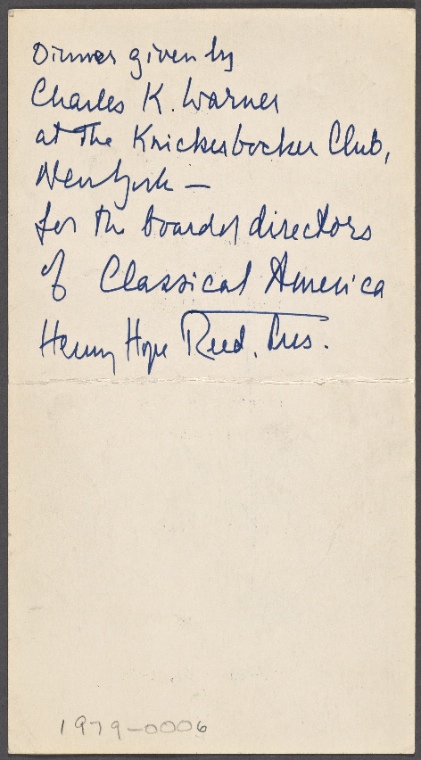 Dinner given by
Charles K. Warner
at The Knickerbocker Club,
New York —
for the board of directors
of Classical America
Henry Hope Reed, Pres.
1979-0006